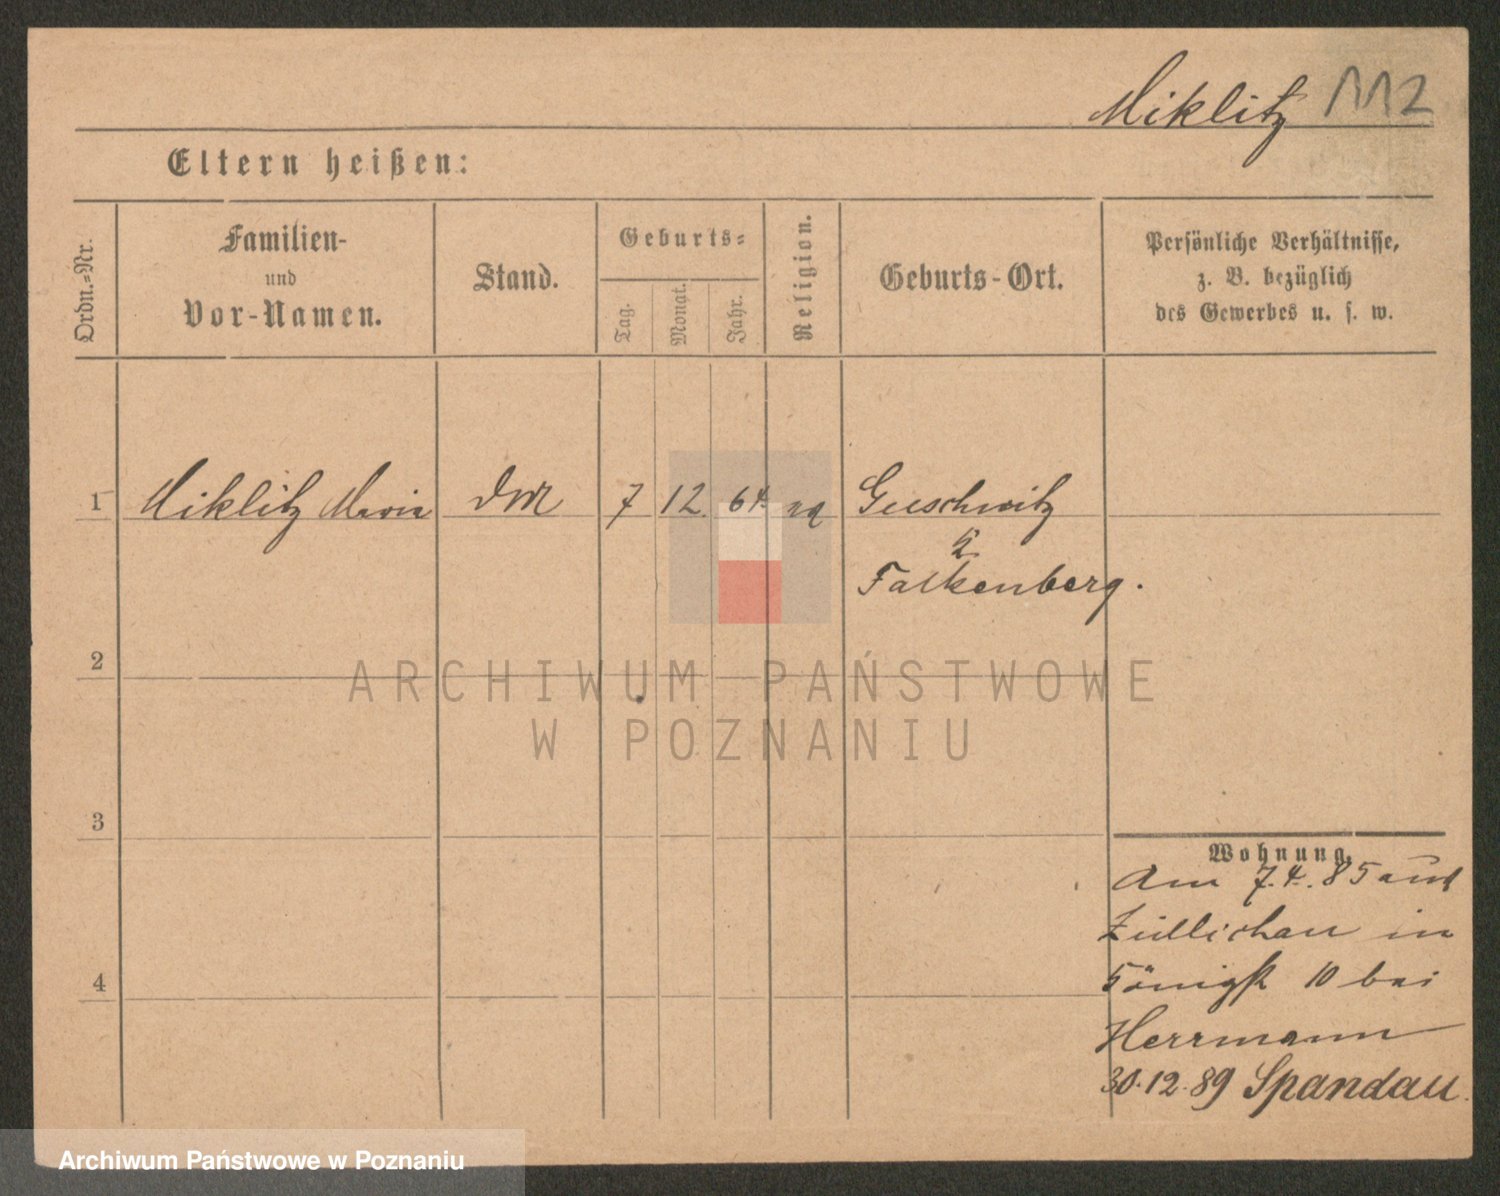 Miklitz 112
Eltern heißen:
Ordn.-Nr.
Familien-
und
Vor-Namen.
Stand.
Geburts-
Tag.
Monat.
Jahr.
Religion.
Geburts-Ort.
Persönliche Verhältnisse,
z. B. bezüglich
des Gewerbes u. s. w.
1 Miklitz Maria 7 12. 64.
Falkenberg.
2
3
4
Wohnung.
Am 7.4.85 aus
Züllichau in
Königst 10 bei
Herrmann
30.12.89 Spandau.
ARCHIWUM PAŃSTWOWE
W POZNANIU
Archiwum Państwowe w Poznaniu